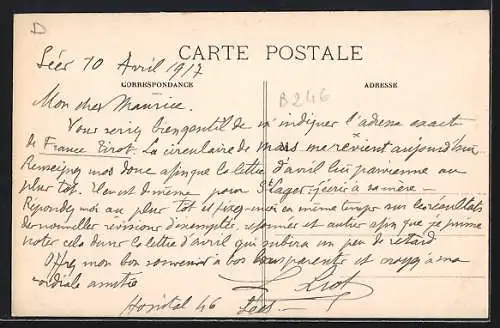 D
CARTE POSTALE
Séez 10 Avril 1917
CORRESPONDANCE
ADRESSE
B246
Mon cher Maurice.
Vous seriez bien gentil de m'indiquer l'adresse exacte
de France Tirot. La circulaire de mars me revient aujourd'hui
Renseignez moi donc afin que la lettre d'avril lui parvienne au
plus tôt. Il en est de même pour St Lager, j'écris à sa mère –
Répondez moi au plus tôt et fixez-moi en même temps sur les résultats
de nouvelles révisions d'exemptés, réformés et autres afin que je puisse
noter cela dans la lettre d'avril qui subira un peu de retard
Offrez mon bon souvenir à vos bons parents et croyez à ma
cordiale amitié
Hopital 46 Séez